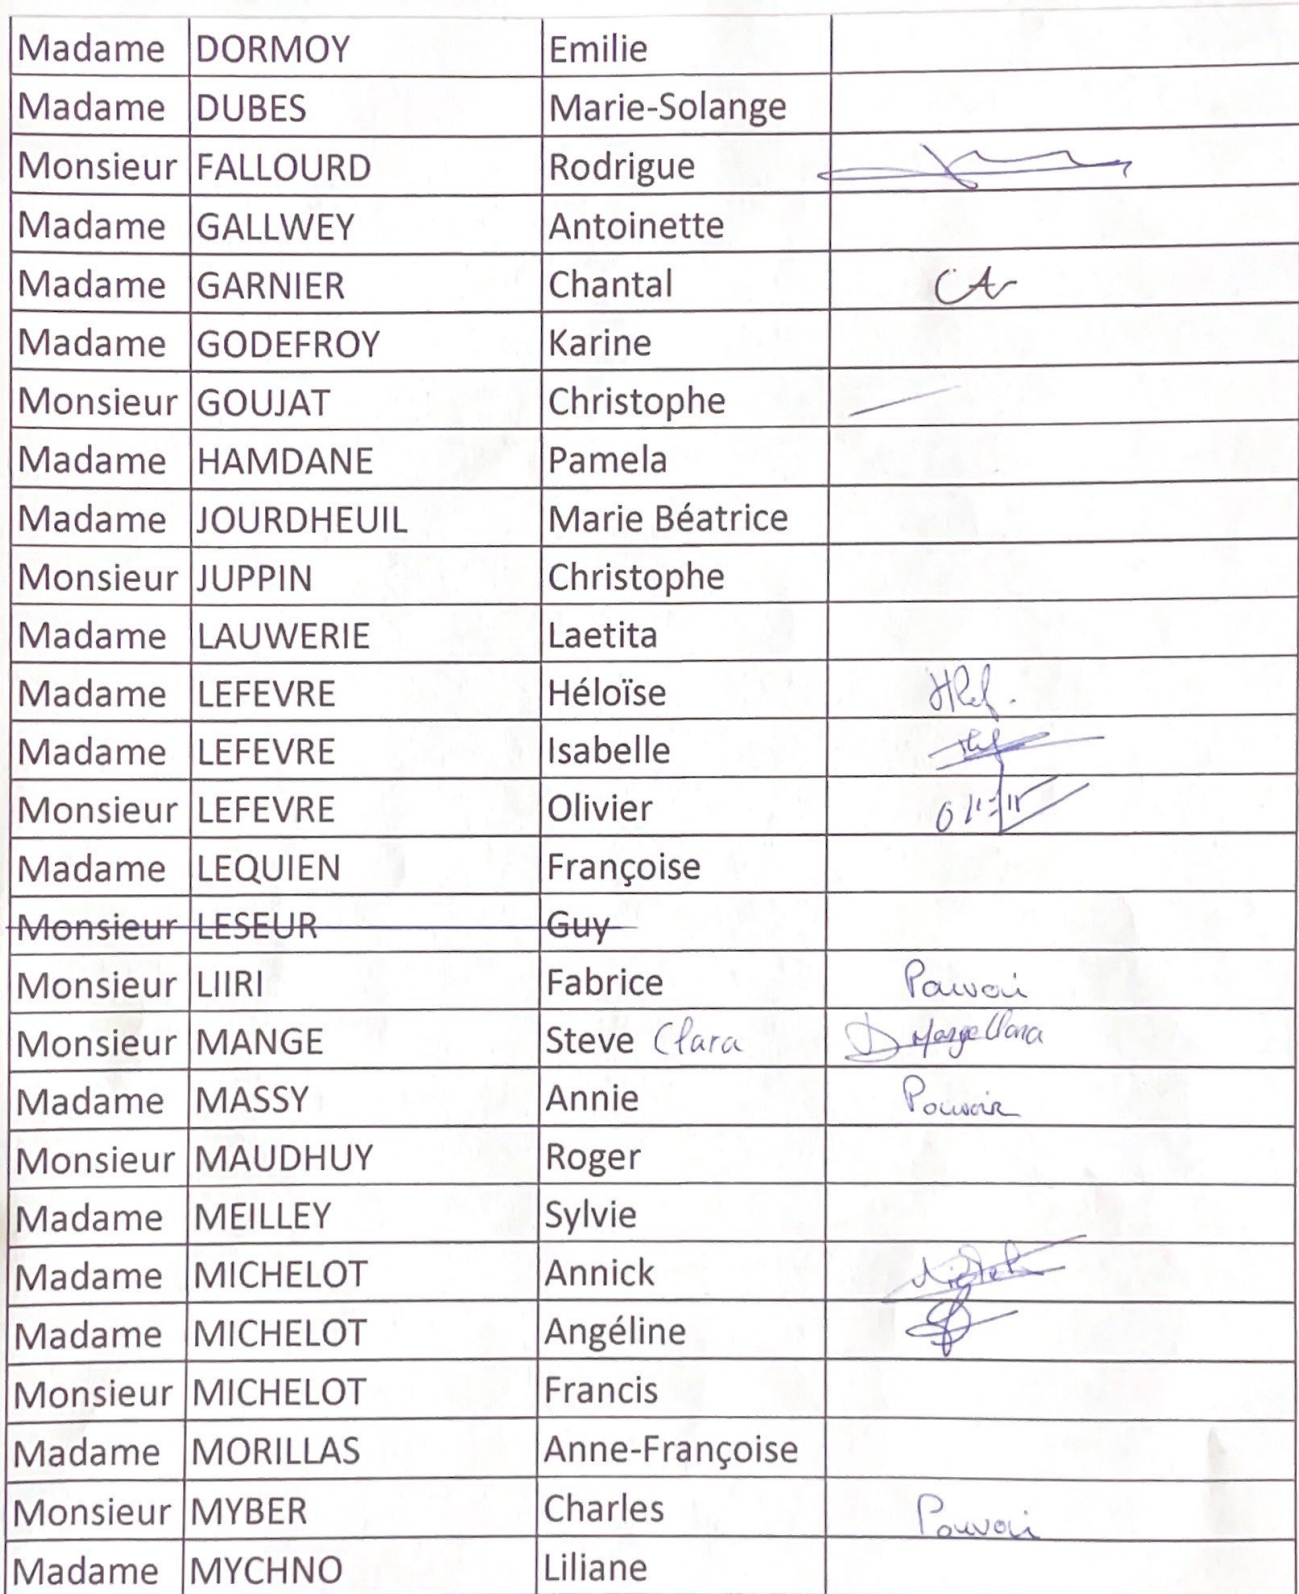 Madame DORMOY Emilie
Madame DUBES Marie-Solange
Monsieur FALLOURD Rodrigue
Madame GALLWEY Antoinette
Madame GARNIER Chantal
Madame GODEFROY Karine
Monsieur GOUJAT Christophe
Madame HAMDANE Pamela
Madame JOURDHEUIL Marie Béatrice
Monsieur JUPPIN Christophe
Madame LAUWERIE Laetita
Madame LEFEVRE Héloïse
Madame LEFEVRE Isabelle
Monsieur LEFEVRE Olivier
Madame LEQUIEN Françoise
Monsieur LESEUR Guy
Monsieur LIIRI Fabrice Pouvoir
Monsieur MANGE Steve Clara Mange Clara
Madame MASSY Annie Pouvoir
Monsieur MAUDHUY Roger
Madame MEILLEY Sylvie
Madame MICHELOT Annick
Madame MICHELOT Angéline
Monsieur MICHELOT Francis
Madame MORILLAS Anne-Françoise
Monsieur MYBER Charles Pouvoir
Madame MYCHNO Liliane